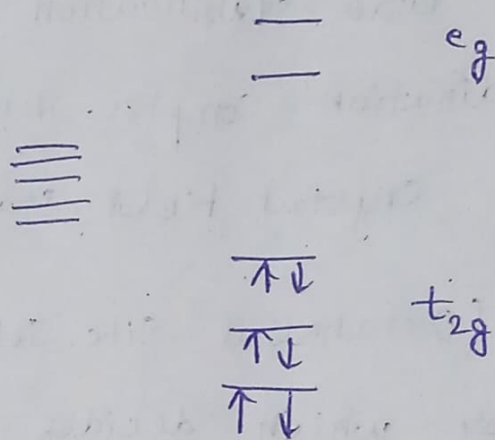 e_g
↑↓
t_2g
↑↓
↑↓